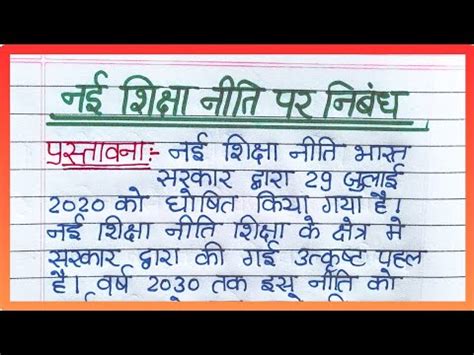 नई शिक्षा नीति पर निबंध
प्रस्तावना:- नई शिक्षा नीति भारत
सरकार द्वारा 29 जुलाई
2020 को घोषित किया गया है।
नई शिक्षा नीति शिक्षा के क्षेत्र मे
सरकार द्वारा की गई उत्कृष्ट पहल
है। वर्ष 2030 तक इस नीति को